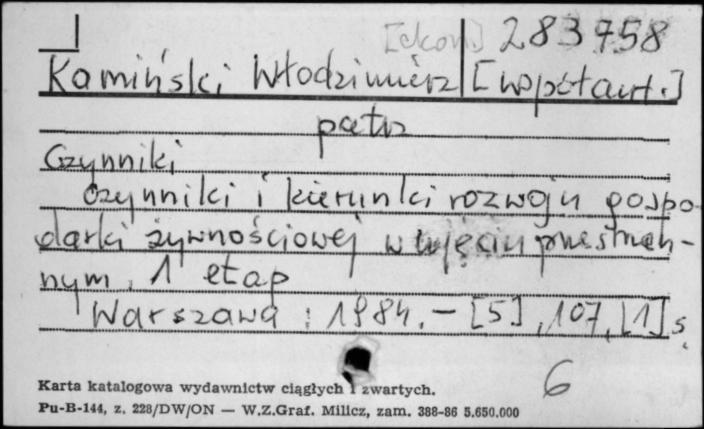 [ekon.] 283758
Kamiński Włodzimierz [współaut.]
patrz
Czynniki
Czynniki i kierunki rozwoju gospo-
darki żywnościowej w ujęciu przestrzen-
nym. 1 etap
Warszawa : 1984. - [5], 107, [1] s.
6
Karta katalogowa wydawnictw ciągłych i zwartych.
Pu-B-144, z. 228/DW/ON — W.Z.Graf. Milicz, zam. 388-86 5.650.000